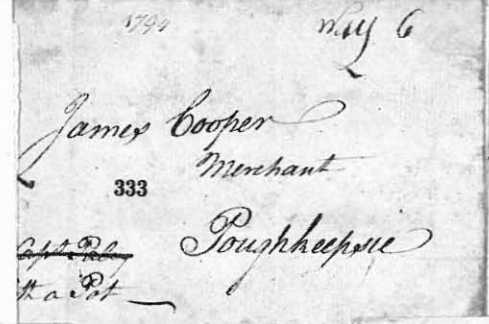 1794
May 6
James Cooper
Merchant
333
Poughkeepsie
th a Pot